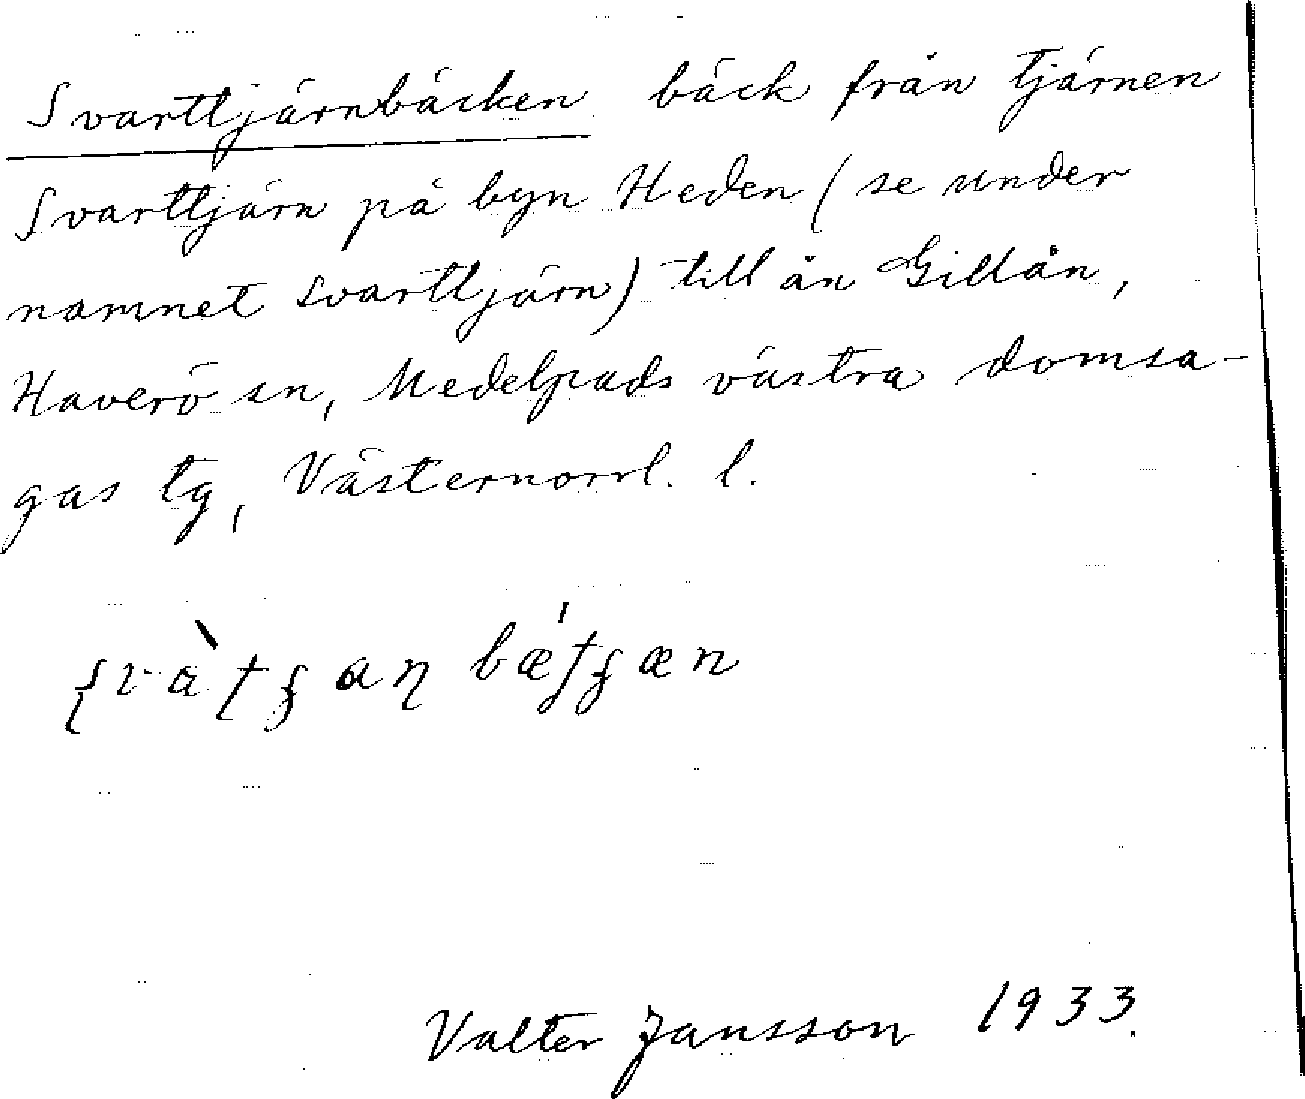 Svarttjärnbäcken bäck från tjärnen
Svarttjärn på byn Heden (se under
namnet Svarttjärn) till ån Gillån,
Haverö sn, Medelpads västra domsa-
gas tg, Västernorrl. l.
Valter Jansson 1933.